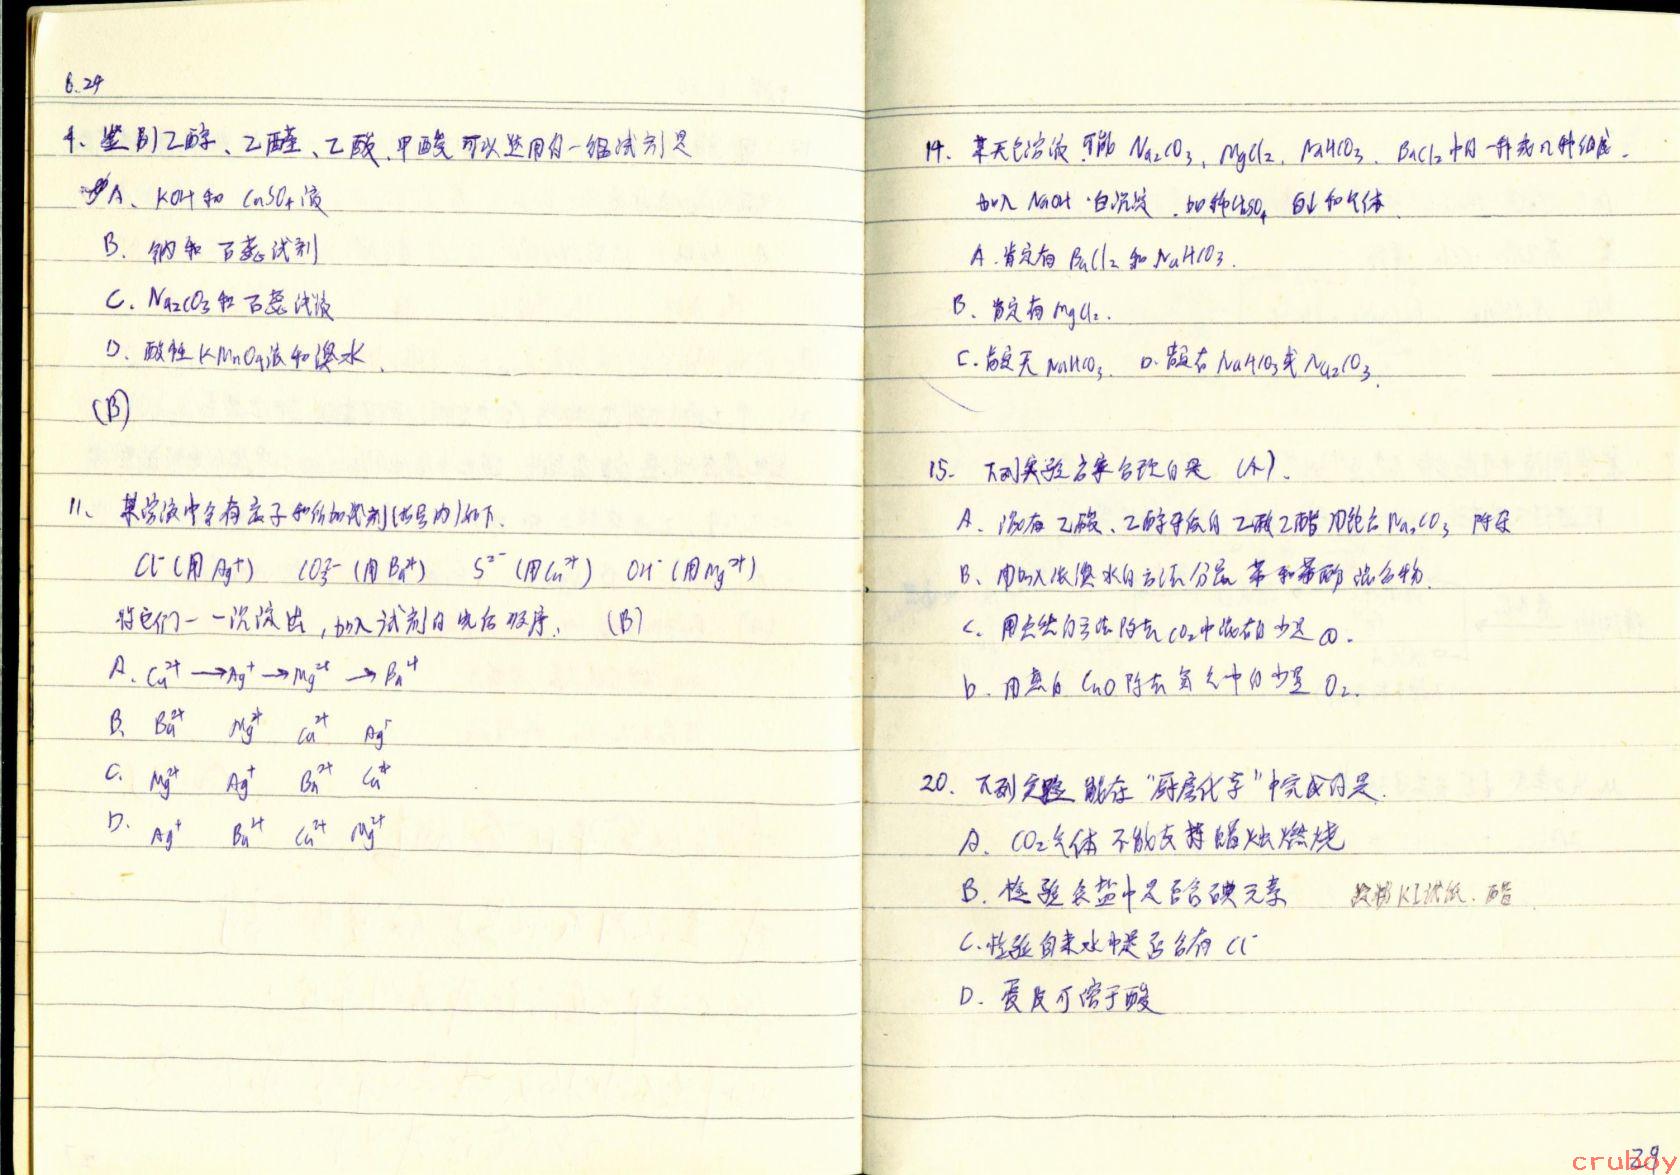 6.24
4、鉴别乙醇、乙醛、乙酸、甲酸可以选用的一组试剂是
A、KOH和CuSO4液
B、钠和石蕊试剂
C、Na2CO3和石蕊试液
D、酸性KMnO4液和溴水.
(B)
11、某溶液中含有离子和所加试剂(括号内)如下.
Cl-(用Ag+) CO3 2-(用Ba2+) S2-(用Cu2+) OH-(用Mg2+)
将它们一一沉淀出,加入试剂的先后顺序. (B)
A. Cu2+ →Ag+ →Mg2+ →Ba2+
B. Ba2+ Mg2+ Cu2+ Ag+
C. Mg2+ Ag+ Ba2+ Cu2+
D. Ag+ Ba2+ Cu2+ Mg2+
14、某无色溶液.可能Na2CO3、MgCl2、NaHCO3、BaCl2中的一种或几种组成.
加入NaOH.白沉淀.加稀H2SO4 白↓和气体.
A.肯定有BaCl2和NaHCO3.
B.肯定有MgCl2.
C.肯定无NaHCO3. D.肯定有NaHCO3或Na2CO3.
15. 下列实验方案合理的是 (A).
A、混有乙酸、乙醇的乙酸乙酯用饱和Na2CO3 除杂
B、用加入浓溴水的方法分离苯和苯酚混合物.
C、用点燃的方法除去CO2中混有的少量CO.
D.用热的CuO除去氮气中的少量O2.
20.下列实验能在“厨房化学”中完成的是.
A、CO2气体不能支持蜡烛燃烧
B.检验食盐中是否含碘元素 淀粉KI试纸.醋
C.检验自来水中是否含有Cl-
D.蛋皮可溶于酸
29
cruboy